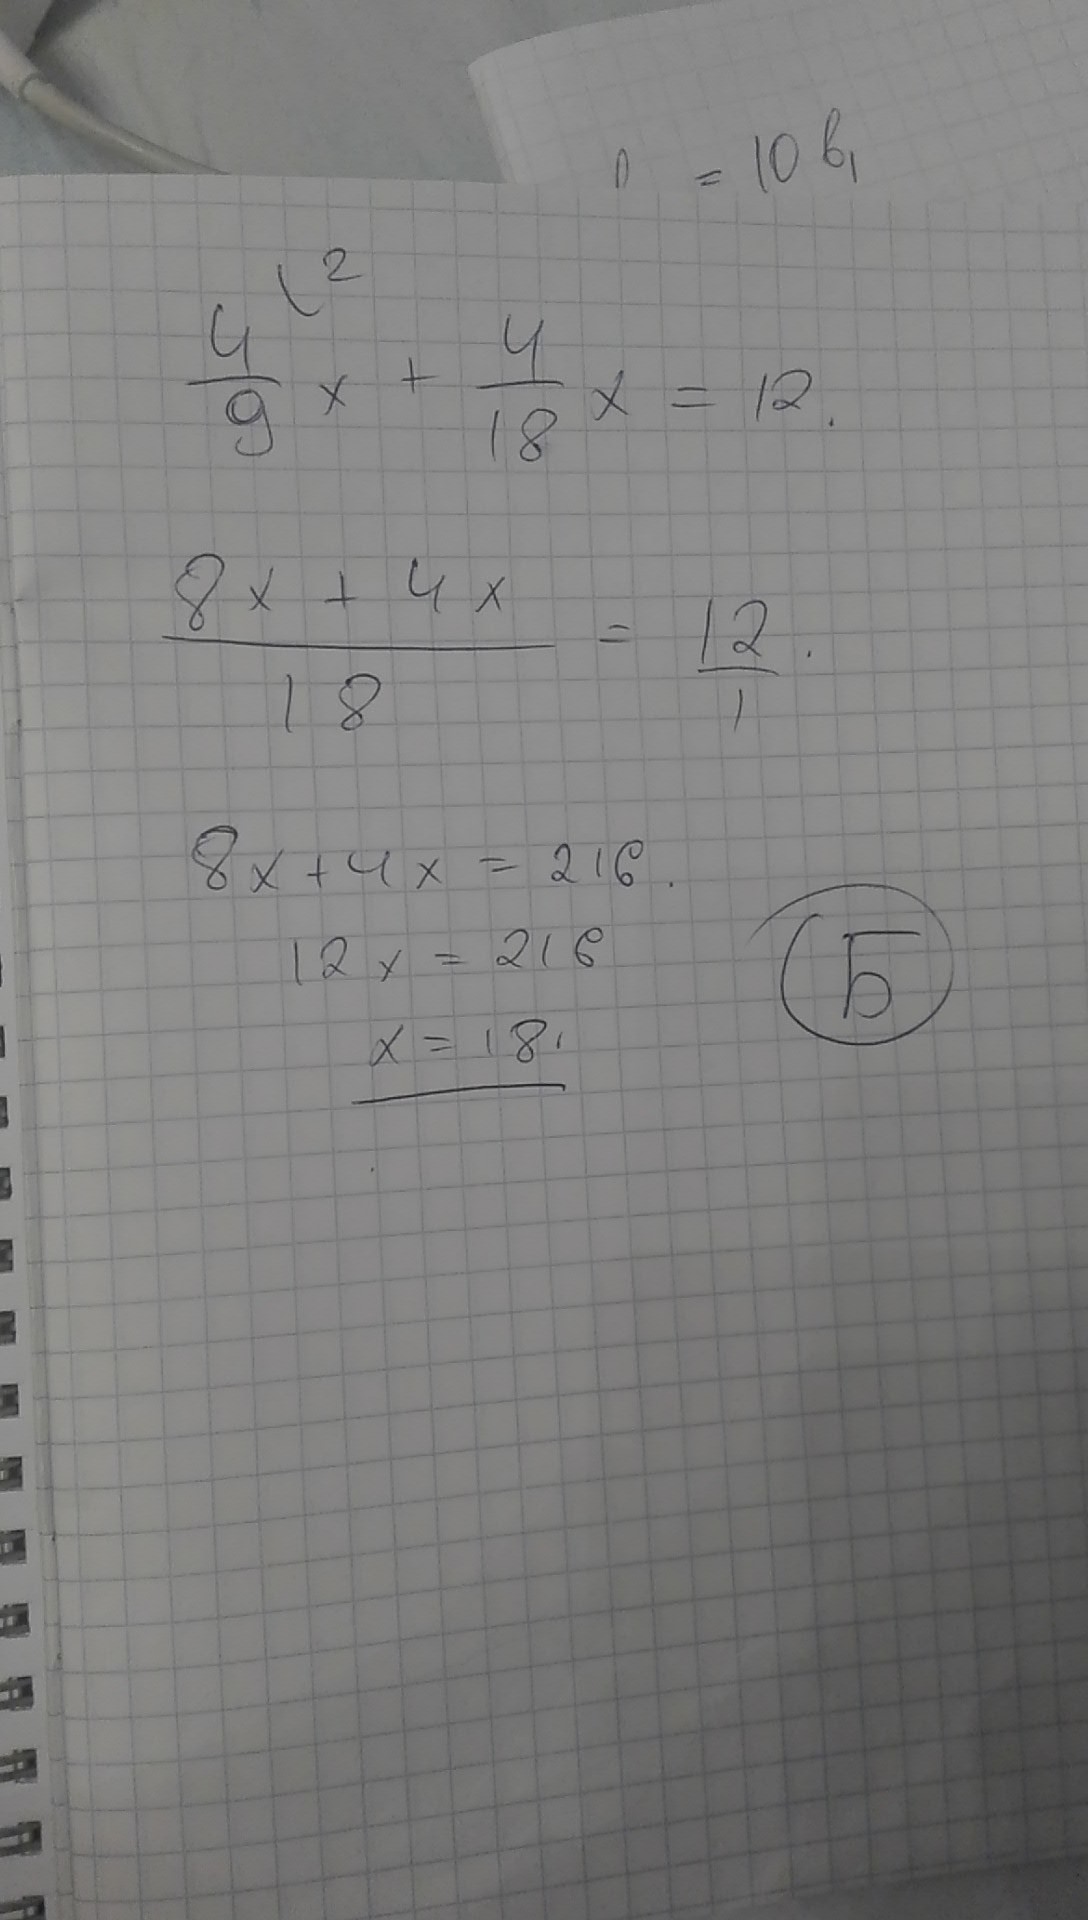 = 10 b₁
4/9 \ 2 x + 4/18 x = 12.
8x + 4x / 18 = 12/1.
8x + 4x = 216.
12x = 216
x = 18.
Б